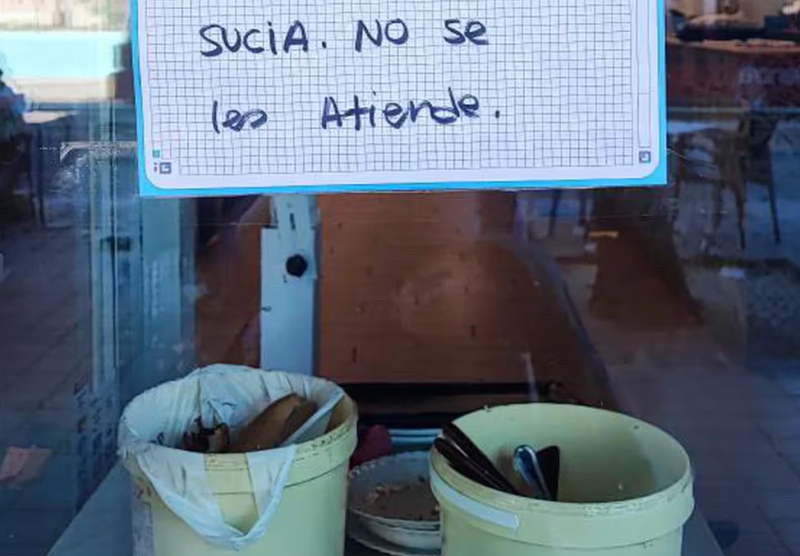 SUCiA. NO se
les Atiende.